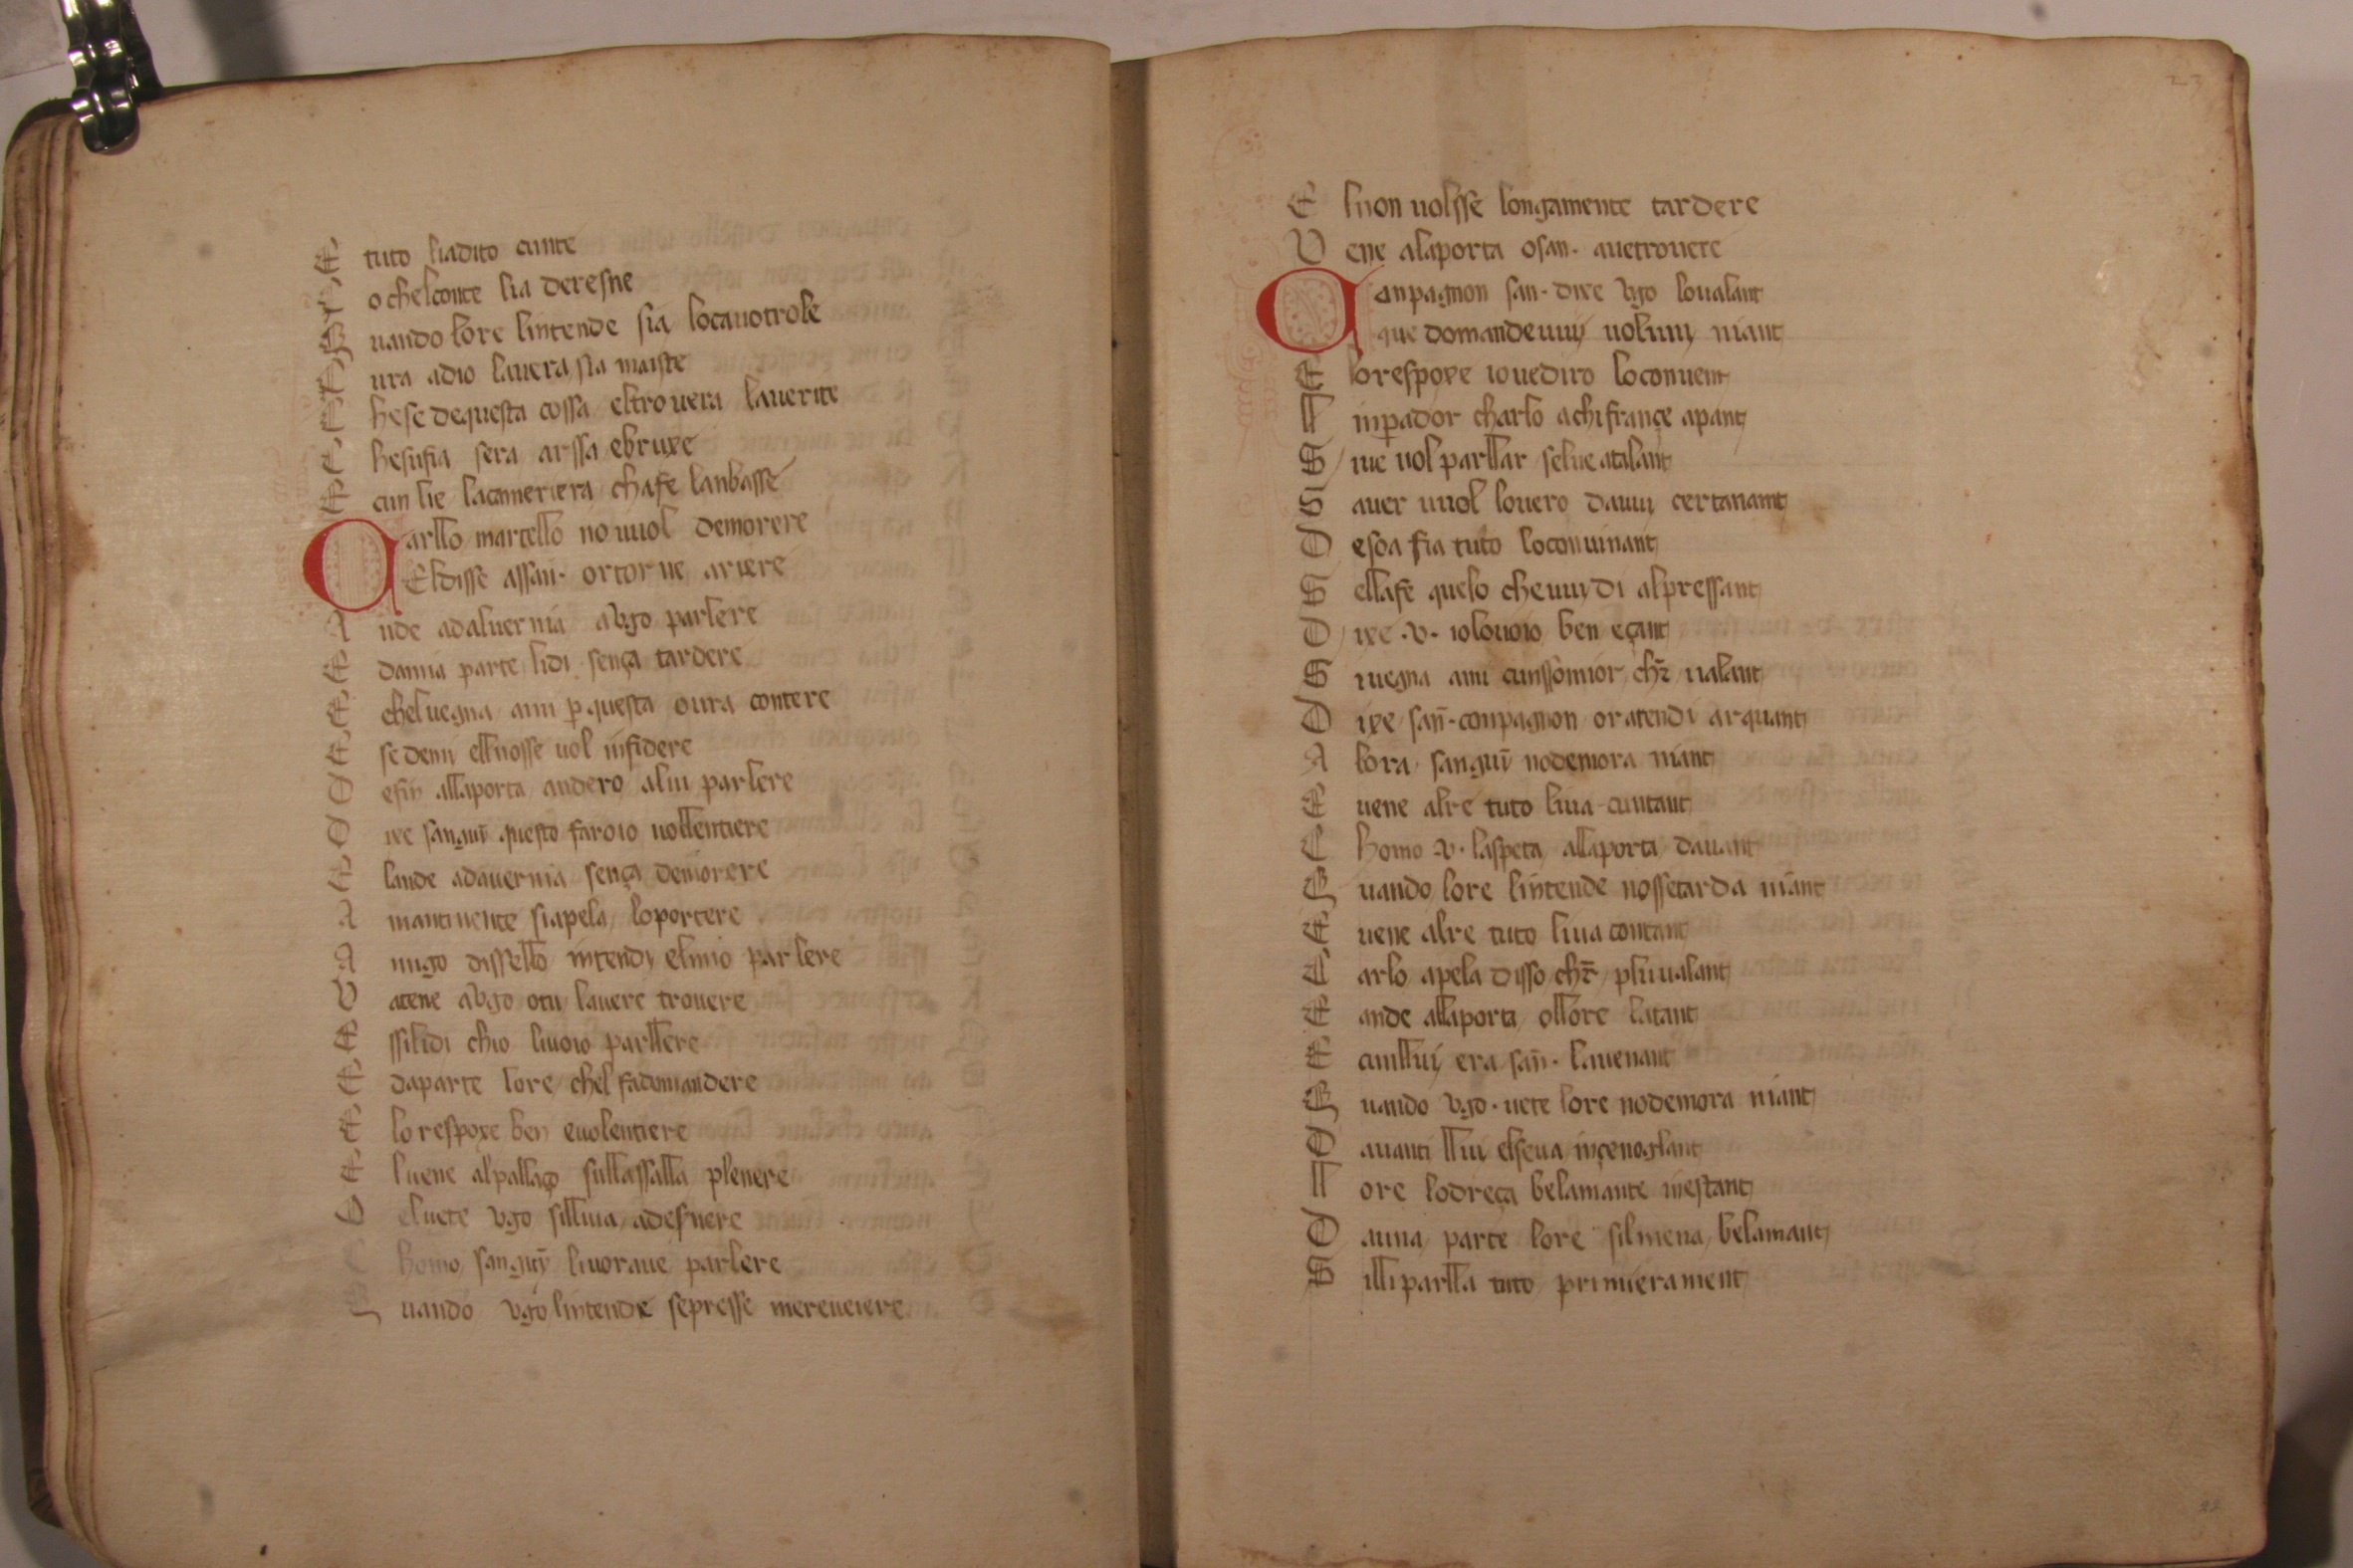 E tuto liadito cunte
E o chelconte lia deresne
Q uando lore lintende sia locauotrole
P ura adio lauera sta maiste
C hese dequesta cossa eltrouera lauerite
C hesusia sera arssa ebruxe
E cun lie lacameriera chafe lanbasse
C arllo martello no uuol demorere
Eldisse assan· ortorne ariere
A nde adaluernia aVgo parlere
E damia parte lidi sença tardere
E chel uegna ami ꝑ questa oura contere
E se demi ell nosse uol infidere
D efin allaporta andero alui parlere
D ixe sanguī questo faroio uollentiere
E lande adauernia sença demorere
A mantinente siapela loportere
A miigo dissello intendi elmio parlere
V atene aVgo otu lauere trouere
E ssilidi chio liuoio parllere
E daparte lore chel fadomandere
E lo respoxe ben euolentiere
E luene alpallaço sullassalla plenere
O eluete Vgo silliua adesnere
C homo sanguỹ liuoraue parlere
Q uando Vgo lintende sepresse mereueiere
23
E lnon uolsse longamente tardere
V ene alaporta osan· auetrouere
C anpagnon san· dixe Vgo loualant
que domandeuuy uoluuy niant
E lorespoxe iouediro loconuent
L inꝑador charlo achifrançe apant
S iue uol parllar selueatalant
S auer uuol louero dauuy certanamt
D esoa fia tuto loconuinant
S ellafe quelo cheuuy di alpressant
D ixe ·V· iolouoio ben eçant
S iuegna ami cunssomior chr̄ ualant
D ixe san̄· conpagnon oratendi arquant
A lora sanguỹ nodemora niant
E uene alre tuto liua cuntant
C homo ·V· laspeta allaporta dauant
Q uando lore lintende nossetarda niant
E uene alre tuto liua contant
C arlo apela disso chr̄ plu ualant
E ande allaporta ollore latant
E cunllui era san̄· lauenant
Q uando Vgo· uete lore nodemora niant
D auanti llui elseua inçenoglant
L ore lodreça belamante inestant
D auna parte lore silmena belamant
S illi parlla tuto primierament